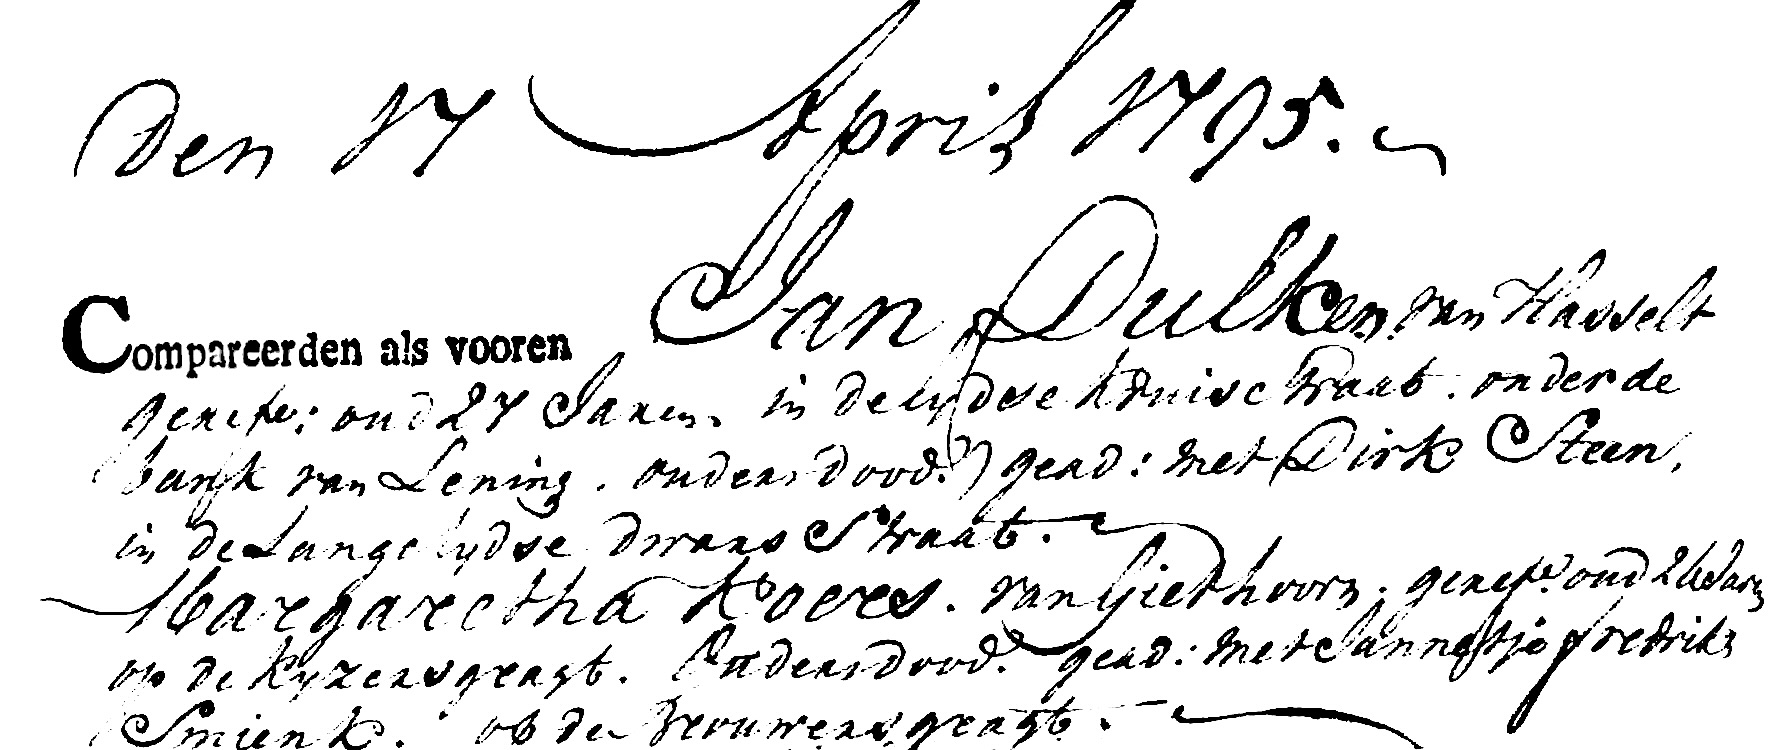 Den 17 April 1795.
Compareerden als vooren Jan Dulken van Hasselt
geref:e: oud 27 Jaren, in de lydse kruisstraat. onder de
bank van Lening. ouders dood.) gead: met Dirk Steen,
in de Lange lydse dwars Straat.
Margaretha Koers. van Giethoorn. geref:e oud 26 Jaren
op de Kyzersgragt. Ouders dood. gead: met Jannetje fredriks
Smienk. op de Brouwersgragt.